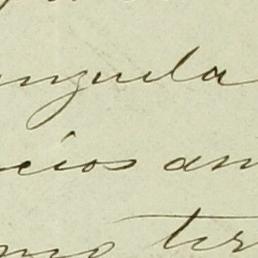 nzuela
cios an
mo ter